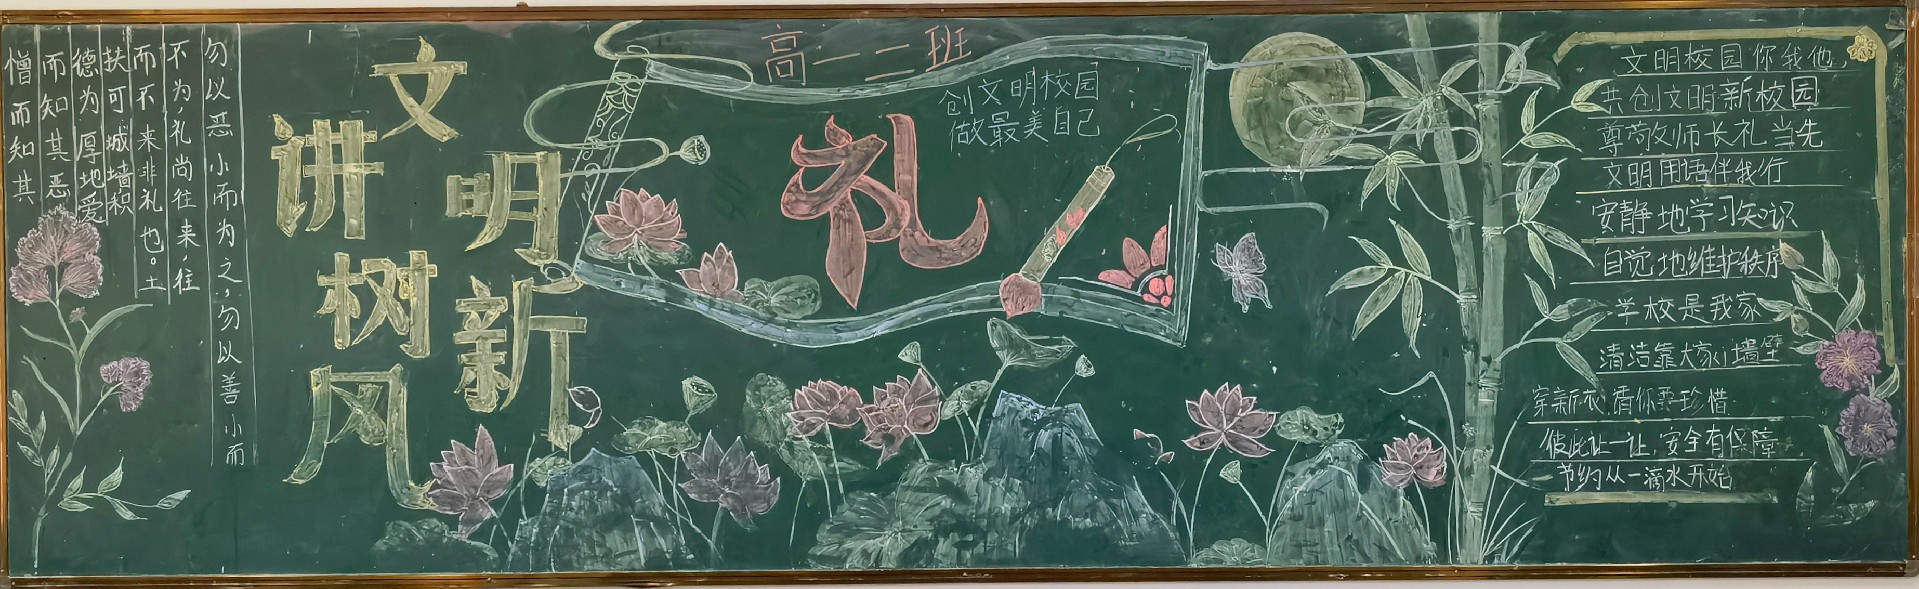 勿以恶小而为之,勿以善小而
不为礼尚往来,往
而不来非礼也。土
扶可城墙积
德为厚地爱
而知其恶
憎而知其
讲文明
树新风
高一二班
创文明校园
做最美自己
礼
文明校园你我他,
共创文明新校园
尊敬师长礼当先
文明用语伴我行
安静地学习知识
自觉地维护秩序
学校是我家
清洁靠大家 墙壁
穿新衣 珍惜
彼此让一让,安全有保障
节约从一滴水开始